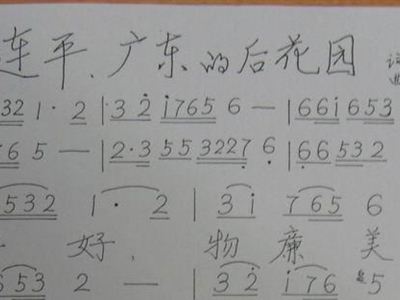 连平、广东的后花园 词
532 1·2 | 3 2 i765 6— | 66i 653
76 5— | 2·3 55 3227 6 | 66 532
6532 1·2 | 3i 765 6
好、物廉美
653 2—— | 32 i76 5